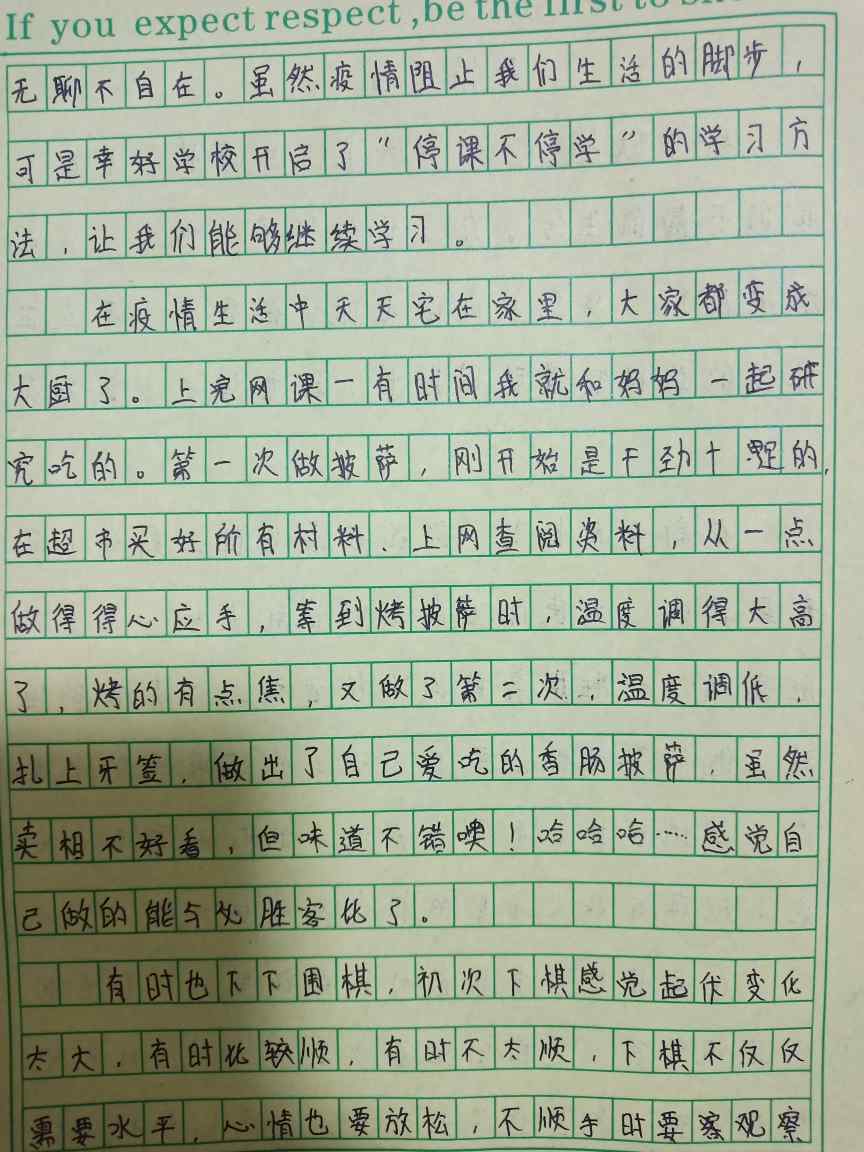 If you expect respect, be the first to
无聊不自在。虽然疫情阻止我们生活的脚步，
可是幸好学校开启了“停课不停学”的学习方
法，让我们能够继续学习。
在疫情生活中天天宅在家里，大家都变成
大厨了。上完网课一有时间我就和妈妈一起研
究吃的。第一次做披萨，刚开始是干劲十足的，
在超市买好所有材料、上网查阅资料，从一点
做得得心应手，等到烤披萨时，温度调得大高
了，烤的有点焦，又做了第二次，温度调低，
扎上牙签，做出了自己爱吃的香肠披萨，虽然
卖相不好看，但味道不错噢！哈哈哈……感觉自
己做的能与必胜客比了。
有时也下下围棋，初次下棋感觉起伏变化
太大，有时比较顺，有时不太顺，下棋不仅仅
需要水平，心情也要放松，不顺手时要察观察